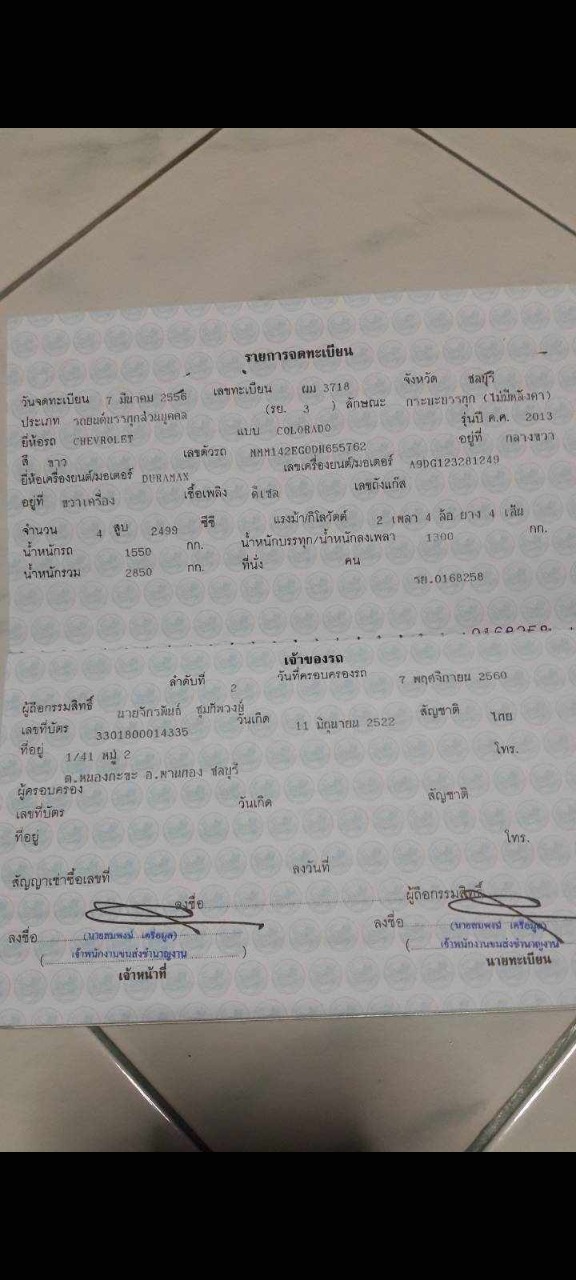 รายการจดทะเบียน
วันจดทะเบียน 7 มีนาคม 2556 เลขทะเบียน ผม 3718 จังหวัด ชลบุรี
ประเภท รถยนต์บรรทุกส่วนบุคคล (รย. 3 ) ลักษณะ กระบะบรรทุก (ไม่มีหลังคา)
ยี่ห้อรถ CHEVROLET แบบ COLORADO รุ่นปี ค.ศ. 2013
สี ขาว เลขตัวรถ MMM142EG0DH655762 อยู่ที่ กลางขวา
ยี่ห้อเครื่องยนต์/มอเตอร์ DURAMAX เลขเครื่องยนต์/มอเตอร์ A9DG123281249
อยู่ที่ ขวาเครื่อง เชื้อเพลิง ดีเซล เลขถังแก๊ส
จำนวน 4 สูบ 2499 ซีซี แรงม้า/กิโลวัตต์ 2 เพลา 4 ล้อ ยาง 4 เส้น
น้ำหนักรถ 1550 กก. น้ำหนักบรรทุก/น้ำหนักลงเพลา 1300 กก.
น้ำหนักรวม 2850 กก. ที่นั่ง คน
รย.0168258
0168258
เจ้าของรถ
ลำดับที่ 2 วันที่ครอบครองรถ 7 พฤศจิกายน 2560
ผู้ถือกรรมสิทธิ์ นายจักรพันธ์ ชุมทีพวงษ์
เลขที่บัตร 3301800014335 วันเกิด 11 มิถุนายน 2522 สัญชาติ ไทย
ที่อยู่ 1/41 หมู่ 2 โทร.
ต.หนองกะขะ อ.พานทอง ชลบุรี
ผู้ครอบครอง
เลขที่บัตร วันเกิด สัญชาติ
ที่อยู่ โทร.
สัญญาเช่าซื้อเลขที่ ลงวันที่
ลงชื่อ ผู้ถือกรรมสิทธิ์
ลงชื่อ (นายสมพงษ์ เครือมูล) ลงชื่อ (นายสมพงษ์ เครือมูล)
( เจ้าพนักงานขนส่งชำนาญงาน ) ( เจ้าพนักงานขนส่งชำนาญงาน
เจ้าหน้าที่ นายทะเบียน